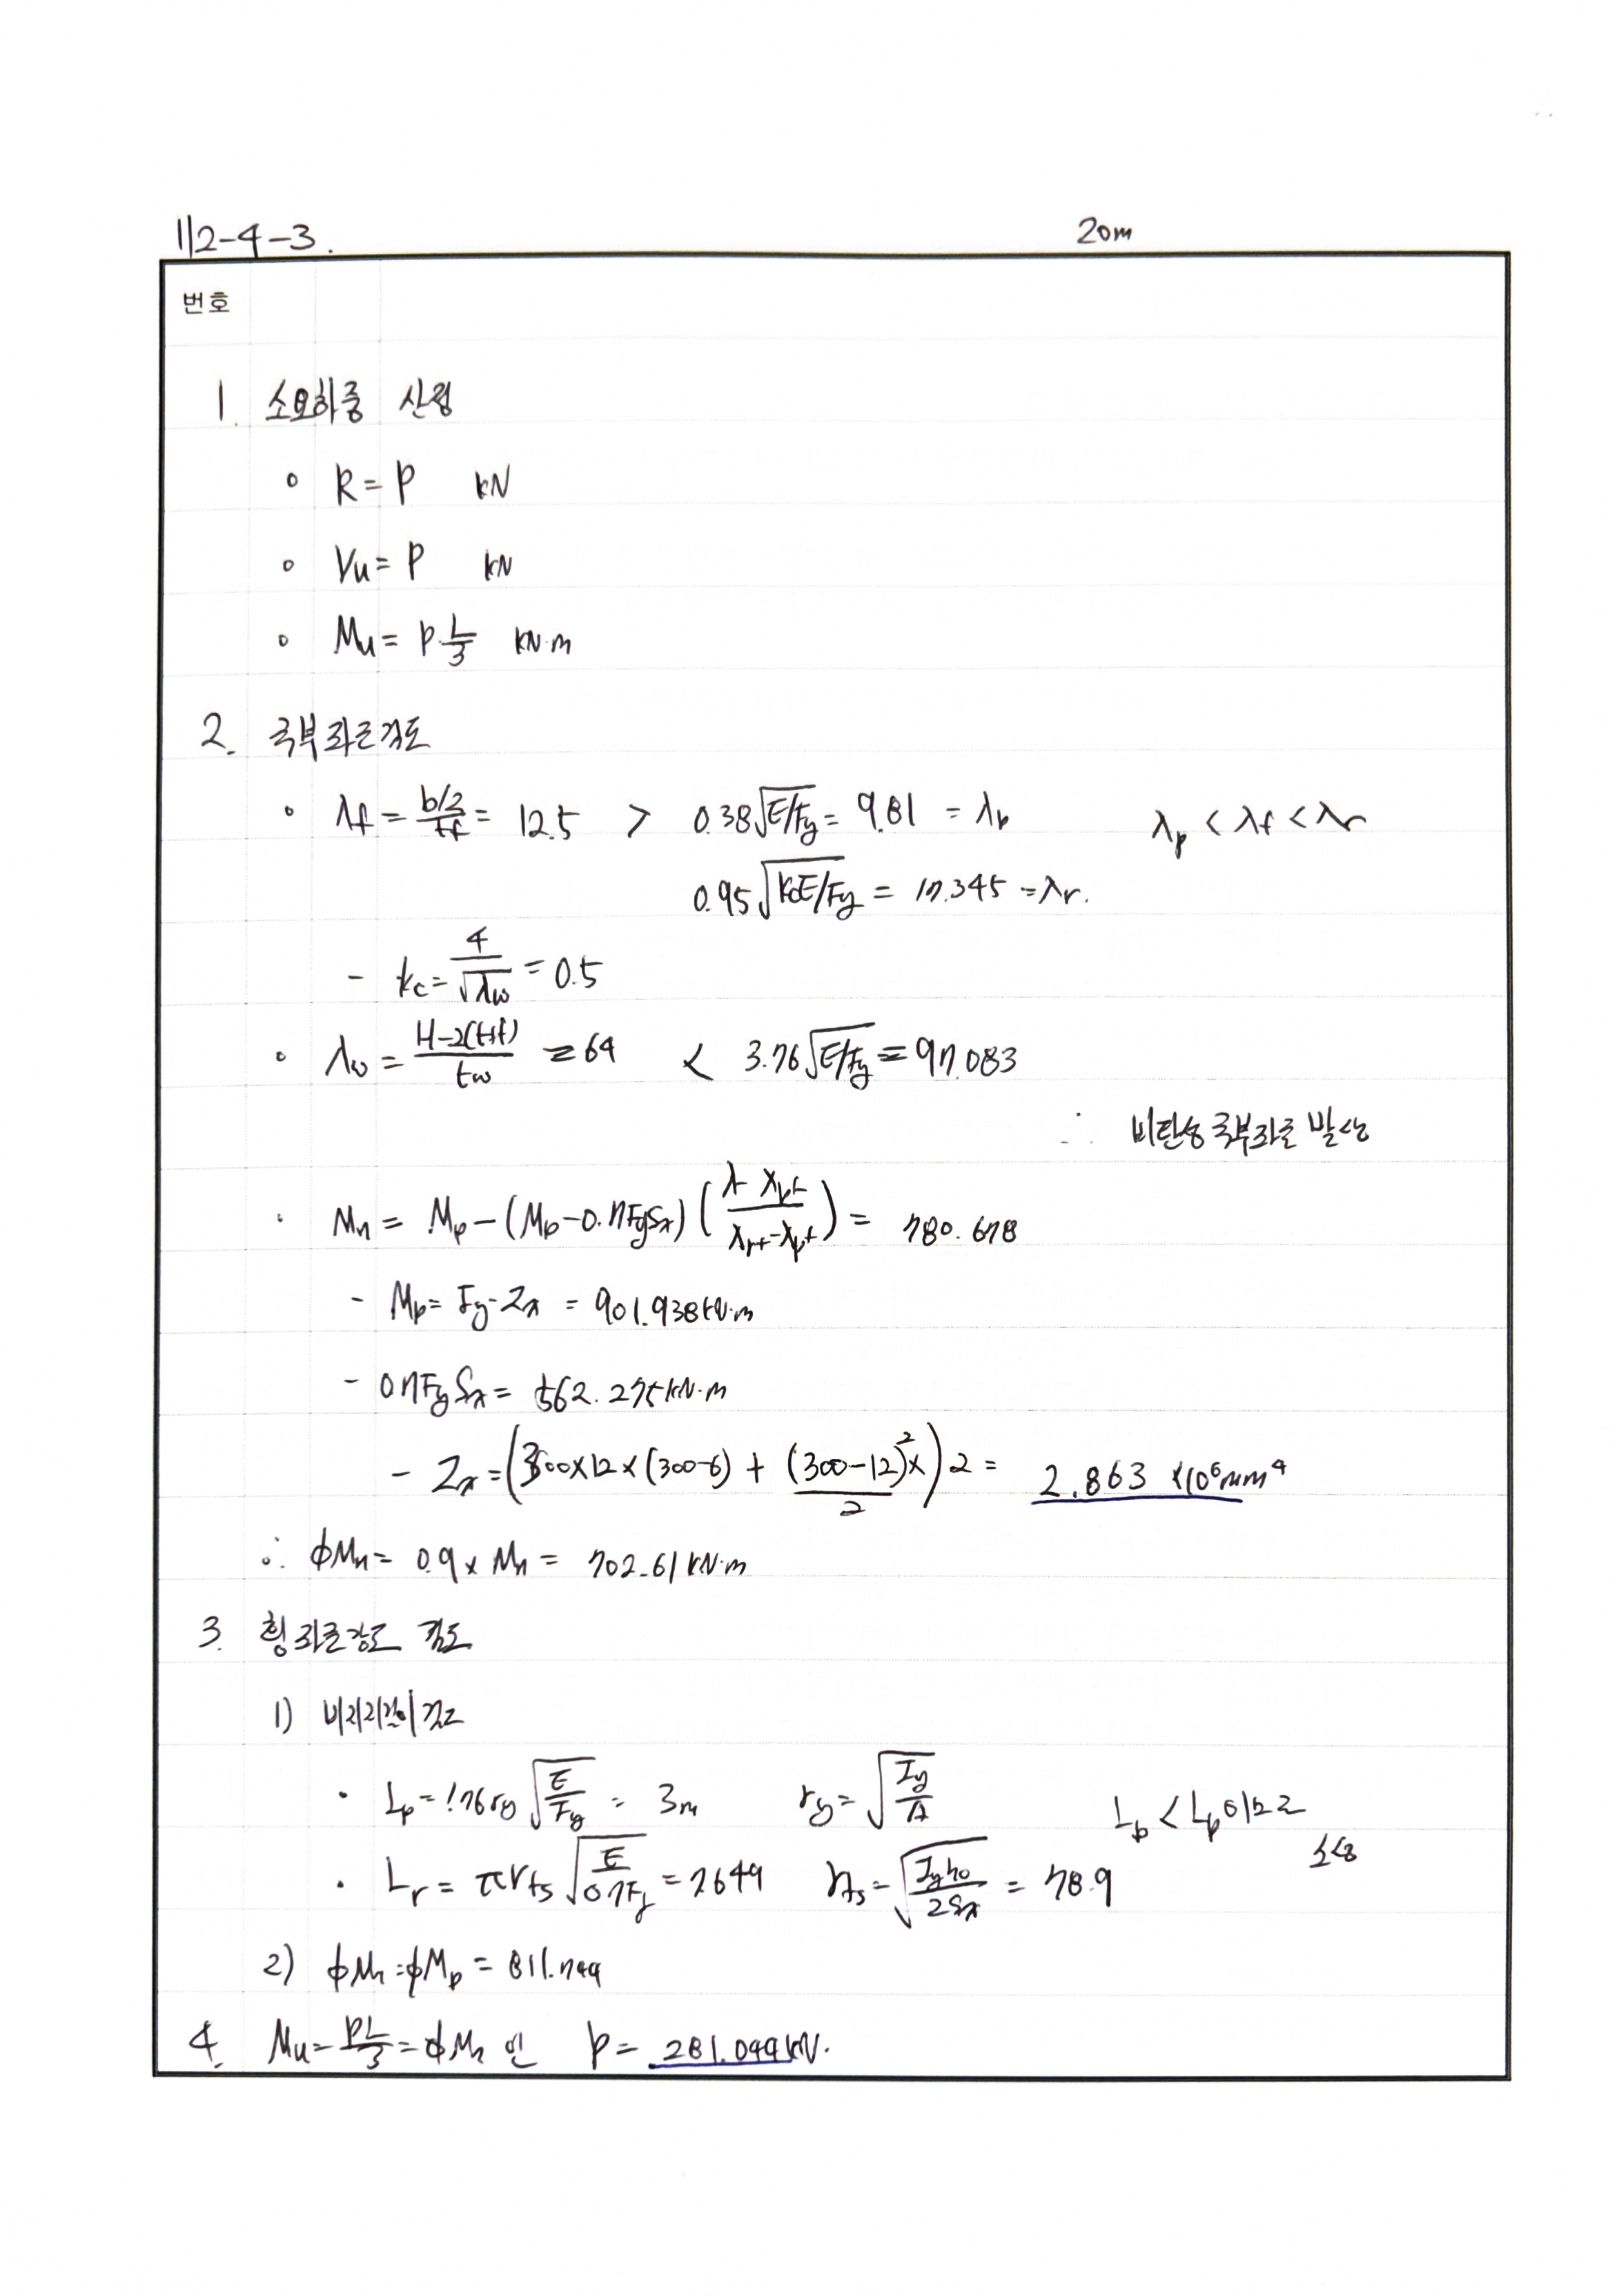 112-4-3.
20m
번호
1. 소요하중 산정
∘ R = P kN
∘ Vu = P kN
∘ Mu = P·L/3 kN·m
2. 국부좌굴검토
∘ λf = (b/2)/tf = 12.5 > 0.38√(E/Fy) = 9.81 = λp λp < λf < λr
0.95√(kcE/Fy) = 17.345 = λr.
- kc = 4/√λw = 0.5
∘ λw = (H-2(t+f))/tw = 64 < 3.76√(E/Fy) = 97.083
∴ 비탄성 국부좌굴 발생
· Mn = Mp - (Mp - 0.7FySx)((λ - λpf)/(λrf - λpf)) = 780.678
- Mp = Fy·Zx = 901.938 kN·m
- 0.7FySx = 562.275 kN·m
- Zx = (300×12×(300-6) + (300-12)²×/2)2 = 2.863 ×10⁶mm⁴
∴ ϕMn = 0.9 × Mn = 702.61 kN·m
3. 횡좌굴강도 검토
1) 비지지길이 검토
· Lp = 1.76ry√(E/Fy) = 3m ry = √(Iy/A) Lb < Lp이므로
소성
· Lr = πrts√(E/0.7Fy) = 7649 rts = √(Iyho/2Sx) = 78.9
2) ϕMn = ϕMp = 811.744
4. Mu = PL/3 = ϕMn 인 P = 281.044kN.